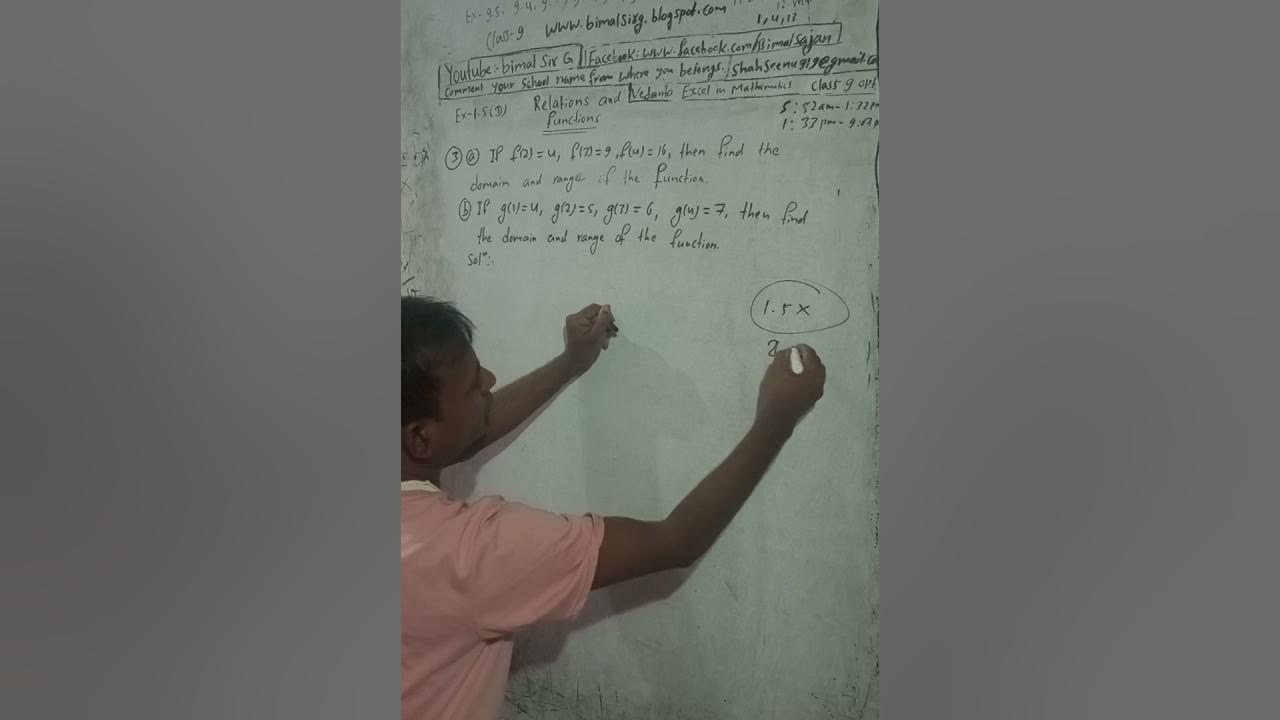 Class-9 www.bimalsirg.blogspot.com 1,4,13
Youtube:- bimal Sir G Facebook: www.facebook.com/Bimalsajan
Comment your School name from where you belongs. / Shahseenu919@gmail.co
Vedanta Excel in Mathematics Class 9 opt
Ex-1.5(D) Relations and functions
5:52am-1:32pm
1:33pm-
3 a) If f(2)=4, f(3)=9, f(4)=16, then find the
domain and range of the function.
b) If g(1)=4, g(2)=5, g(3)=6, g(4)=7, then find
the domain and range of the function.
Solⁿ:.
1.5x
2